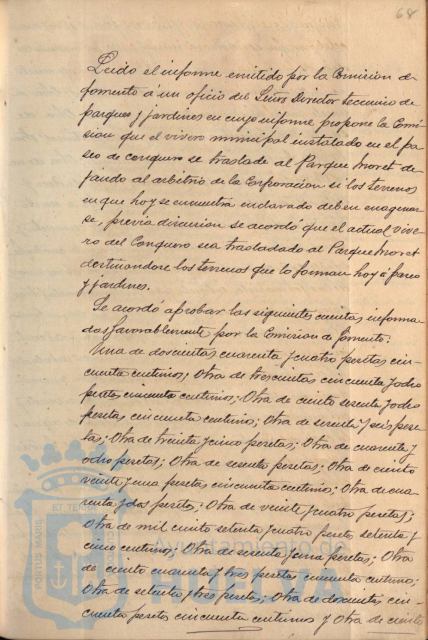 68
Leido el informe emitido por la Comision de
fomento á un oficio del Señor Director tecnico de
parques y jardines en cuyo informe propone la Comi-
sion que el vivero municipal instalado en el pa-
seo de conquero se traslade al Parque Moret de-
jando al arbitrio de la Corporacion si los terrenos
en que hoy se encuentra enclavado deben enagenar-
se, previa discusion se acordó que el actual vive-
ro del Conquero sea trasladado al Parque Moret
destinandose los terrenos que lo forman hoy á paseo
y jardines.
Se acordó aprobar las siguientes cuentas informa-
das favorablemente por la Comision de fomento:
Una de doscientas cuarenta y cuatro pesetas cin-
cuenta centimos; Otra de trescientas cincuenta y ocho
pesetas cincuenta centimos; Otra de ciento sesenta y ocho
pesetas cincuenta centimos; Otra de sesenta y seis pese-
tas; Otra de treinta y cinco pesetas; Otra de cuarenta y
ocho pesetas; Otra de sesenta pesetas; Otra de ciento
veinte y una pesetas cincuenta centimos; Otra de cua-
renta y dos pesetas; Otra de veinte y cuatro pesetas;
Otra de mil ciento setenta y cuatro pesetas setenta y
cinco centimos; Otra de sesenta y una pesetas; Otra
de ciento cuarenta y tres pesetas cincuenta centimos;
Otra de setenta y tres pesetas; Otra de doscientas cin-
cuenta pesetas cincuenta centimos y Otra de ciento
PORTUS MARIS
ET TERRAE
Ayuntamiento de
HUELVA